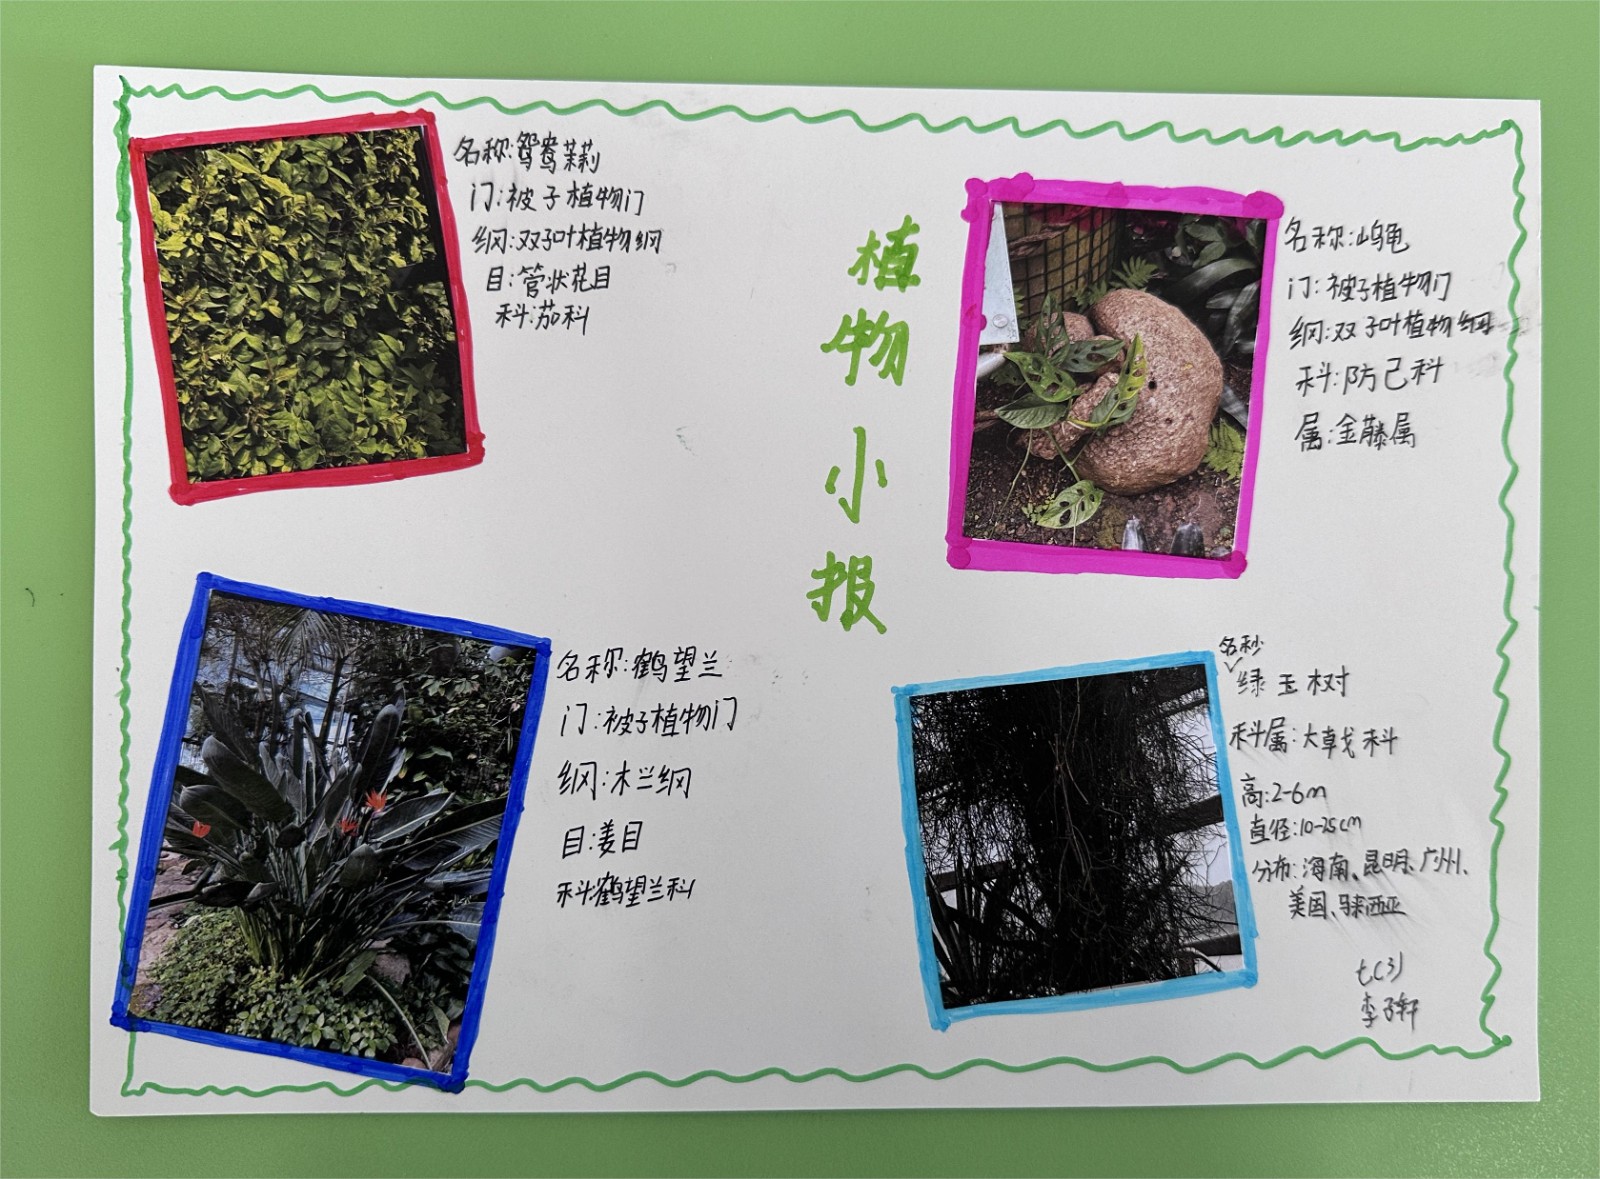 名称:鸳鸯茉莉
门:被子植物门
纲:双子叶植物纲
目:管状花目
科:茄科
植物小报
名称:山乌龟
门:被子植物门
纲:双子叶植物纲
科:防己科
属:金藤属
名称:鹤望兰
门:被子植物门
纲:木兰纲
目:姜目
科:鹤望兰科
名称
绿玉树
科属:大戟科
高:2-6m
直径:10-25cm
分布:海南、昆明、广州、
美国、马来西亚
七(3)
李子轩